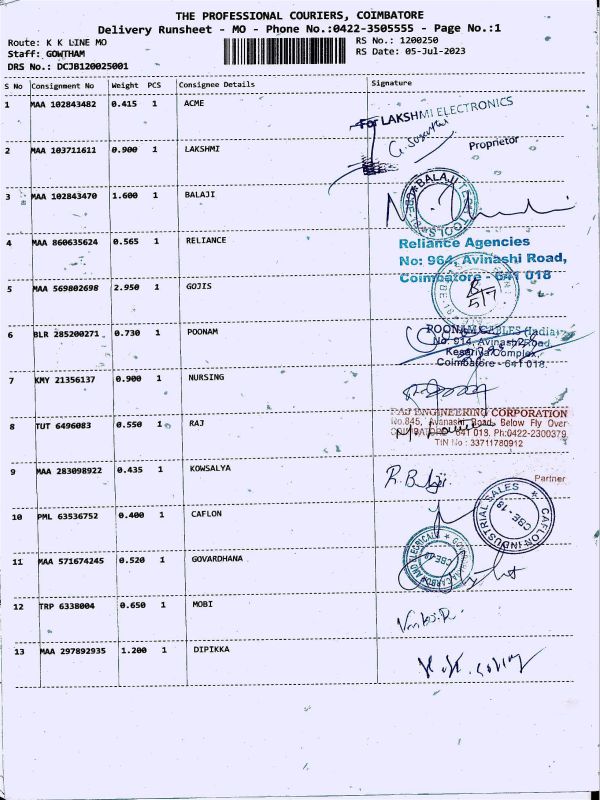 THE PROFESSIONAL COURIERS, COIMBATORE
Delivery Runsheet - MO - Phone No.:0422-3505555 - Page No.:1
Route: K K LINE MO
RS No.: 1200250
Staff: GOWTHAM
RS Date: 05-Jul-2023
DRS No.: DCJB120025001
S No Consignment No Weight PCS Consignee Details Signature
1 MAA 102843482 0.415 1 ACME
For LAKSHMI ELECTRONICS
Proprietor
2 MAA 103711611 0.900 1 LAKSHMI
3 MAA 102843470 1.600 1 BALAJI
BALAJI
4 MAA 860635624 0.565 1 RELIANCE
Reliance Agencies
No: 964, Avinashi Road,
Coimbatore - 641 018
5 MAA 569802698 2.950 1 GOJIS
5/7
6 BLR 285200271 0.730 1 POONAM
POONAM CABLES (India)
No. 914, Avinashi Road,
Kesariya Complex,
Coimbatore - 641 018.
7 KMY 21356137 0.900 1 NURSING
8 TUT 6496083 0.550 1 RAJ
RAJ ENGINEERING CORPORATION
No.845, Avanashi Road, Below Fly Over
COIMBATORE - 641 013. Ph:0422-2300379
TIN No : 33711780912
Partner
9 MAA 283098922 0.435 1 KOWSALYA
R. Balaji
10 PML 63536752 0.400 1 CAFLON
CAFLON INDUSTRIAL SALES
CBE - 18
11 MAA 571674245 0.520 1 GOVARDHANA
12 TRP 6338004 0.650 1 MOBI
13 MAA 297892935 1.200 1 DIPIKKA